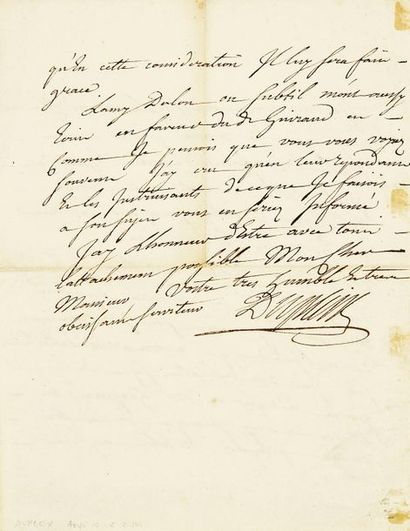 qu'en cette consideration Il luy sera fair
grace
Lamy Dalon ou Subtil m'ont aussy
Ecrit en faveur du dt Guiraud en
Comme Je pensois que vous vous voyez
souvent J'ay cru qu'en leur repondant
Et les Instruisants de ce que Je faisois
a son sujet vous en seriez Informé
J'ay Lhonneur d'Etre avec tout
lattachement possible Mon Cher
Monsieur Votre tres humble Et tres
obeissant serviteur